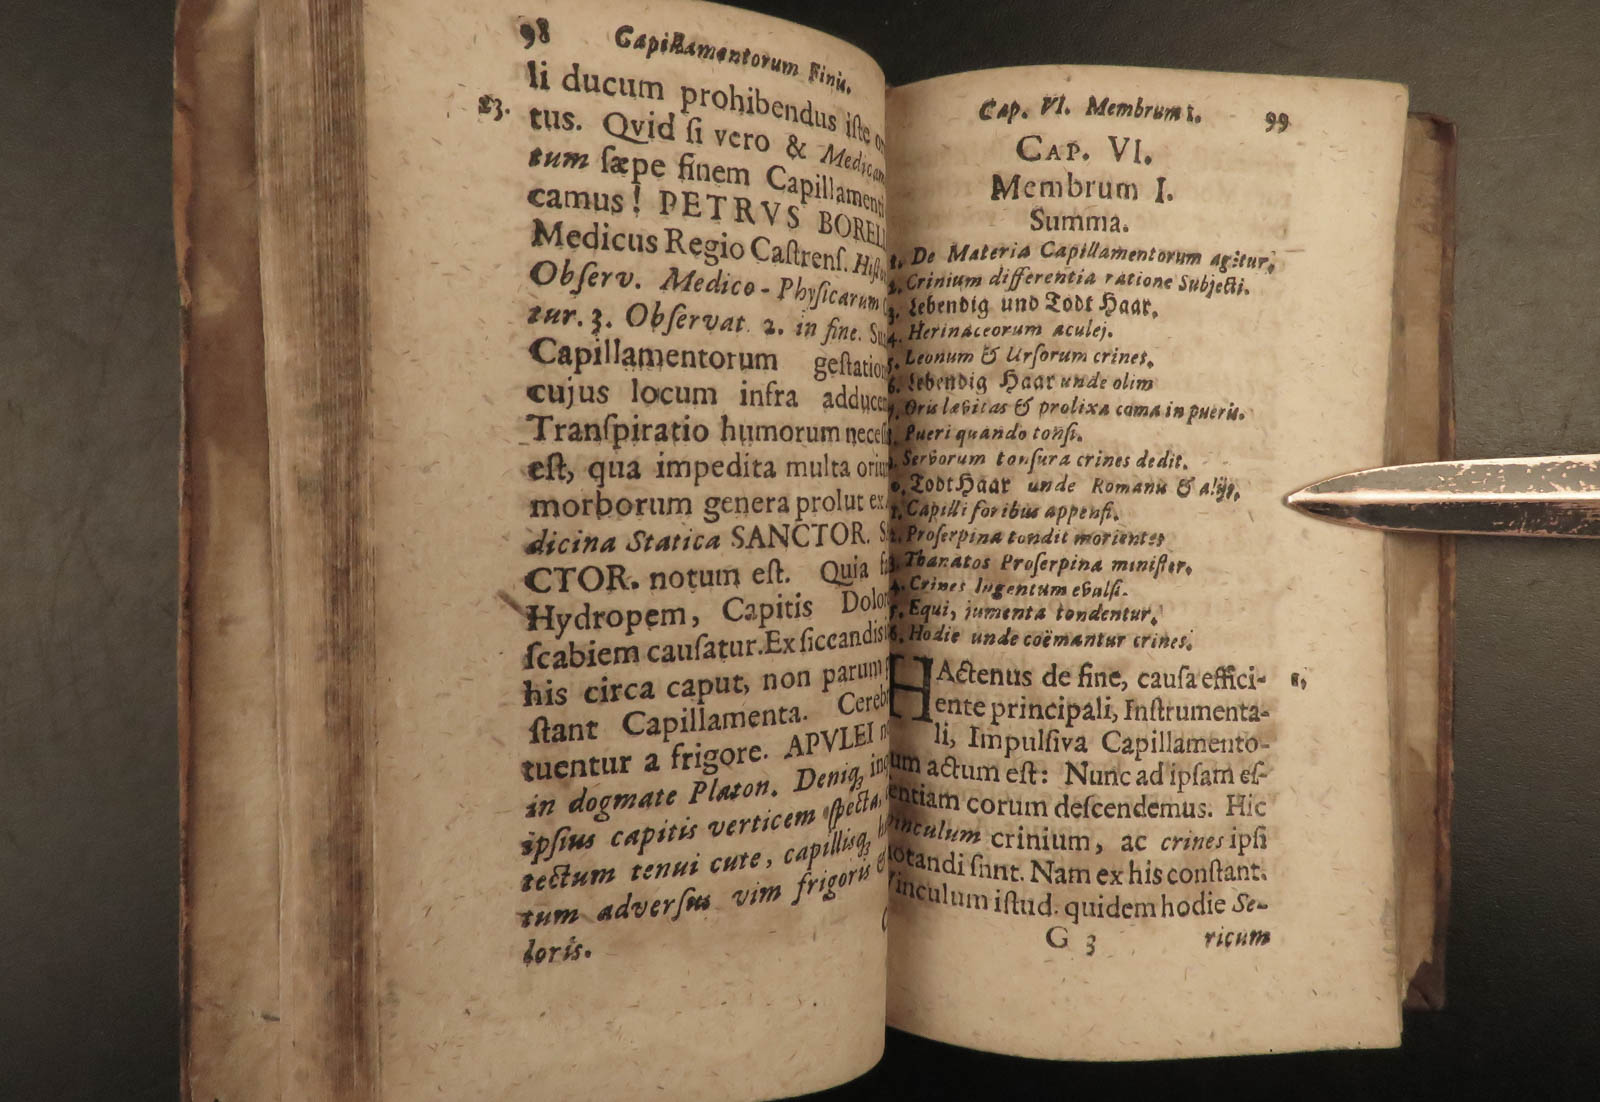 98 Capillamentorum Finis.
li ducum prohibendus iſte
23. tus. Qvid ſi vero & Medicam
tum ſæpe finem Capillamenti
camus! PETRVS BORELL
Medicus Regio Caſtrenſ. Hiſt
Obſerv. Medico-Phyſicarum
tur. 3. Obſervat. 2. in fine.
Capillamentorum geſtation
cujus locum infra adducem
Tranſpiratio humorum neceſſ
eſt, qua impedita multa oriun
morborum genera prolut ex
dicina Statica SANCTOR. S
CTOR. notum eſt. Quia
Hydropem, Capitis Dolor
ſcabiem cauſatur. Ex ſiccandis
his circa caput, non parum
ſtant Capillamenta. Cereb
tuentur a frigore. APVLEI
in dogmate Platon. Deniq; inq
ipſius capitis verticem ſpecta,
tectum tenui cute, capillisq;
tum adverſus vim frigoris &
loris.
Cap. VI. Membrum I. 99
CAP. VI.
Membrum I.
Summa.
1. De Materia Capillamentorum agitur.
2. Crinium differentia ratione Subjecti.
3. Lebendig und Todt Haar.
4. Herinaceorum aculej.
5. Leonum & Urſorum crines.
6. Lebendig Haar unde olim
7. Oris lævitas & prolixa coma in pueris.
Pueri quando tonſi.
Servorum tonſura crines dedit.
0. Todt Haar unde Romanis & alijs.
1. Capilli foribus appenſi.
2. Proſerpina tondit morientes
3. Thanatos Proſerpina miniſter.
4. Crines lugentum evulſi.
5. Equi, jumenta tondentur.
6. Hodie unde coëmantur crines.
HActenus de fine, cauſa effici- 1.
ente principali, Inſtrumenta-
li, Impulſiva Capillamento-
um actum eſt: Nunc ad ipſam eſ-
entiam eorum deſcendemus. Hic
inculum crinium, ac crines ipſi
otandi ſunt. Nam ex his conſtant.
Vinculum iſtud quidem hodie Se-
G 3 ricum